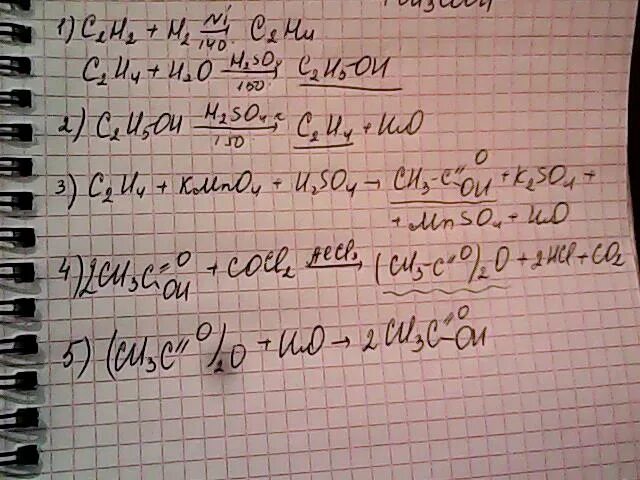 1) C₂H₂ + H₂ Ni/140 C₂H₄
C₂H₄ + H₂O H₂SO₄/150 → C₂H₅OH
2) C₂H₅OH H₂SO₄ к/150 → C₂H₄ + H₂O
3) C₂H₄ + KMnO₄ + H₂SO₄ → CH₃-C=O OH + K₂SO₄ +
+ MnSO₄ + H₂O
4) 2CH₃C=O OH + COCl₂ AlCl₃ → (CH₃-C=O)₂O + 2HCl + CO₂
5) (CH₃C=O)₂O + H₂O → 2CH₃C=O OH